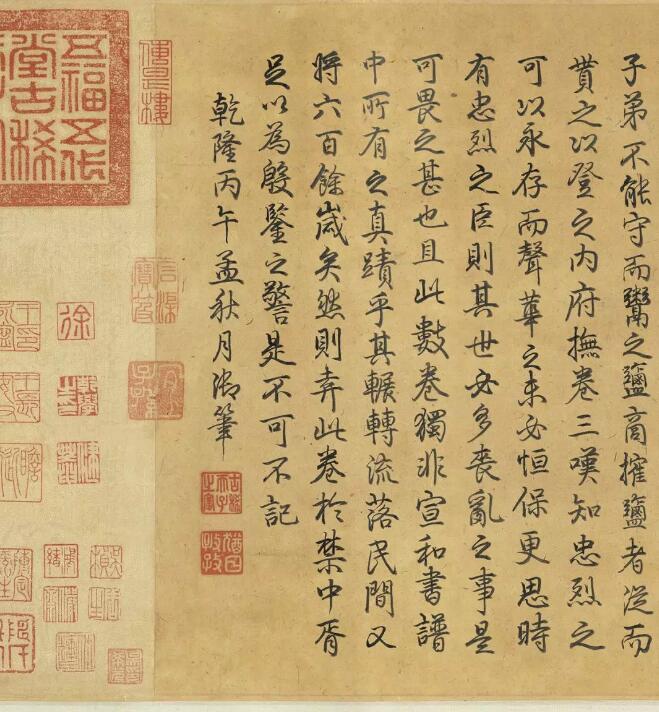 子弟不能守而鬻之鹽商搉鹽者從而
貢之以登之內府撫卷三嘆知忠烈之
可以永存而聲華之未必恒保更思時
有忠烈之臣則其世必多喪亂之事是
可畏之甚也且此數卷獨非宣和書譜
中所有之真蹟乎其輾轉流落民間又
將六百餘歲矣然則弆此卷於禁中胥
足以為殷鑒之警是不可不記
乾隆丙午孟秋月御筆
古稀天子之寶
猶日孜孜
傳是樓
五福五代
堂古稀